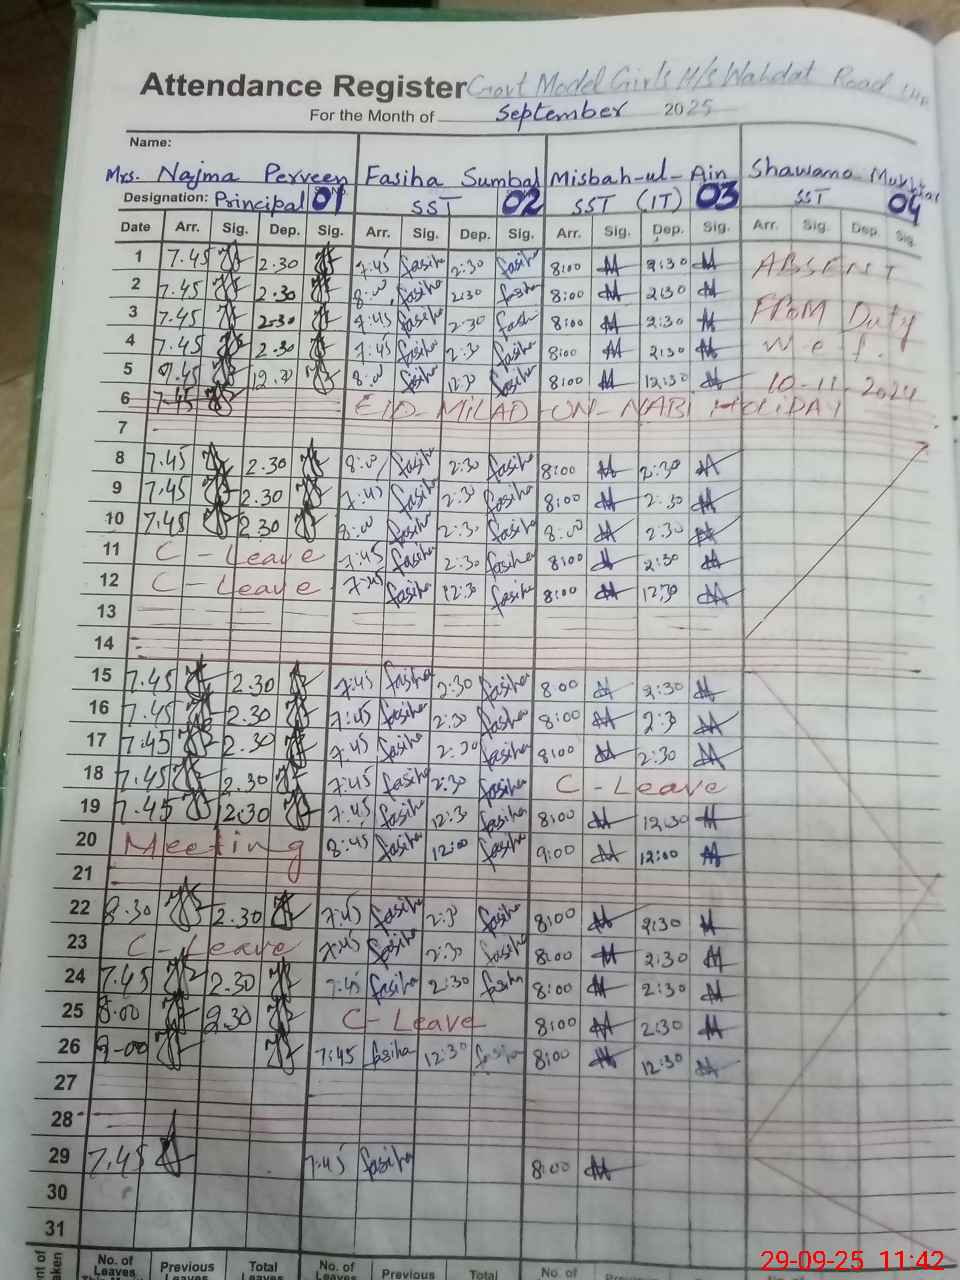 Attendance Register Govt Model Girls H/S Wahdat Road Lhr
For the Month of September 2025
Name:
Mrs. Najma Perveen Fasiha Sumbal Misbah-ul-Ain Shawana
Designation: Principal 01 SST 02 SST (IT) 03 SST 04
Date Arr. Sig. Dep. Sig. Arr. Sig. Dep. Sig. Arr. Sig. Dep. Sig. Arr. Sig. Dep. Sig.
1 7.45 2.30 7:45 fasiha 2:30 fasiha 8:00 2:30 ABSENT
2 7.45 2.30 8:00 fasiha 2:30 fasiha 8:00 2:30
3 7.45 2.30 7:45 fasiha 2:30 fasiha 8:00 2:30 FROM Duty
4 7.45 2.30 7:45 fasiha 2:30 fasiha 8:00 2:30 w.e.f.
5 7.45 12.30 8:00 fasiha 12:30 fasiha 8:00 12:30 10-11-2024
6 7.45 EID-MILAD-UN-NABI HOLIDAY
7
8 7.45 2.30 8:00 fasiha 2:30 fasiha 8:00 2:30
9 7.45 2.30 7:45 fasiha 2:30 fasiha 8:00 2:30
10 7.45 2.30 8:00 fasiha 2:30 fasiha 8:00 2:30
11 C-Leave 7:45 fasiha 2:30 fasiha 8:00 2:30
12 C-Leave 7:45 fasiha 12:30 fasiha 8:00 12:30
13
14
15 7.45 2.30 7:45 fasiha 2:30 fasiha 8:00 2:30
16 7.45 2.30 7:45 fasiha 2:30 fasiha 8:00 2:3
17 7.45 2.30 7:45 fasiha 2:30 fasiha 8:00 2:30
18 7.45 2.30 7:45 fasiha 2:30 fasiha C-Leave
19 7.45 2.30 7:45 fasiha 12:30 fasiha 8:00 12:30
20 Meeting 8:45 fasiha 12:00 fasiha 9:00 12:00
21
22 8.30 2.30 7:45 fasiha 2:30 fasiha 8:00 2:30
23 C-Leave 7:45 fasiha 2:30 fasiha 8:00 2:30
24 7.45 2.30 7:45 fasiha 2:30 fasiha 8:00 2:30
25 8.00 2.30 C-Leave 8:00 2:30
26 9-00 7:45 fasiha 12:30 fasiha 8:00 12:30
27
28
29 7.45 7:45 fasiha 8:00
30
31
No. of Leaves Previous Total No. of Leaves Previous Total No. of
29-09-25 11:42